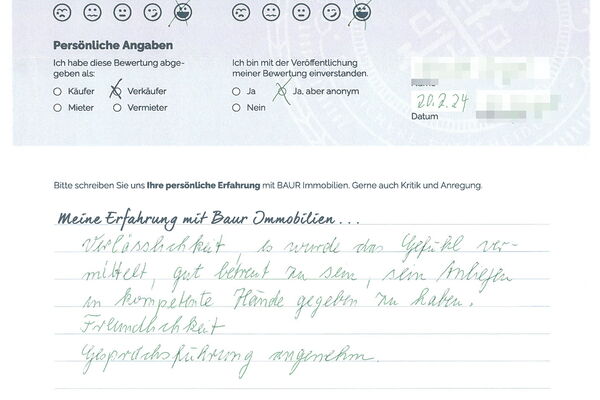 Persönliche Angaben
Ich habe diese Bewertung abge-
geben als:
Käufer
Verkäufer
Mieter
Vermieter
Ich bin mit der Veröffentlichung
meiner Bewertung einverstanden.
Ja
Ja, aber anonym
Nein
20.2.24
Datum
Bitte schreiben Sie uns Ihre persönliche Erfahrung mit BAUR Immobilien. Gerne auch Kritik und Anregung.
Meine Erfahrung mit Baur Immobilien...
Verlässlichkeit, es wurde das Gefühl ver-
mittelt, gut betreut zu sein, sein Anliegen
in kompetente Hände gegeben zu haben.
Freundlichkeit
Gesprächsführung angenehm.